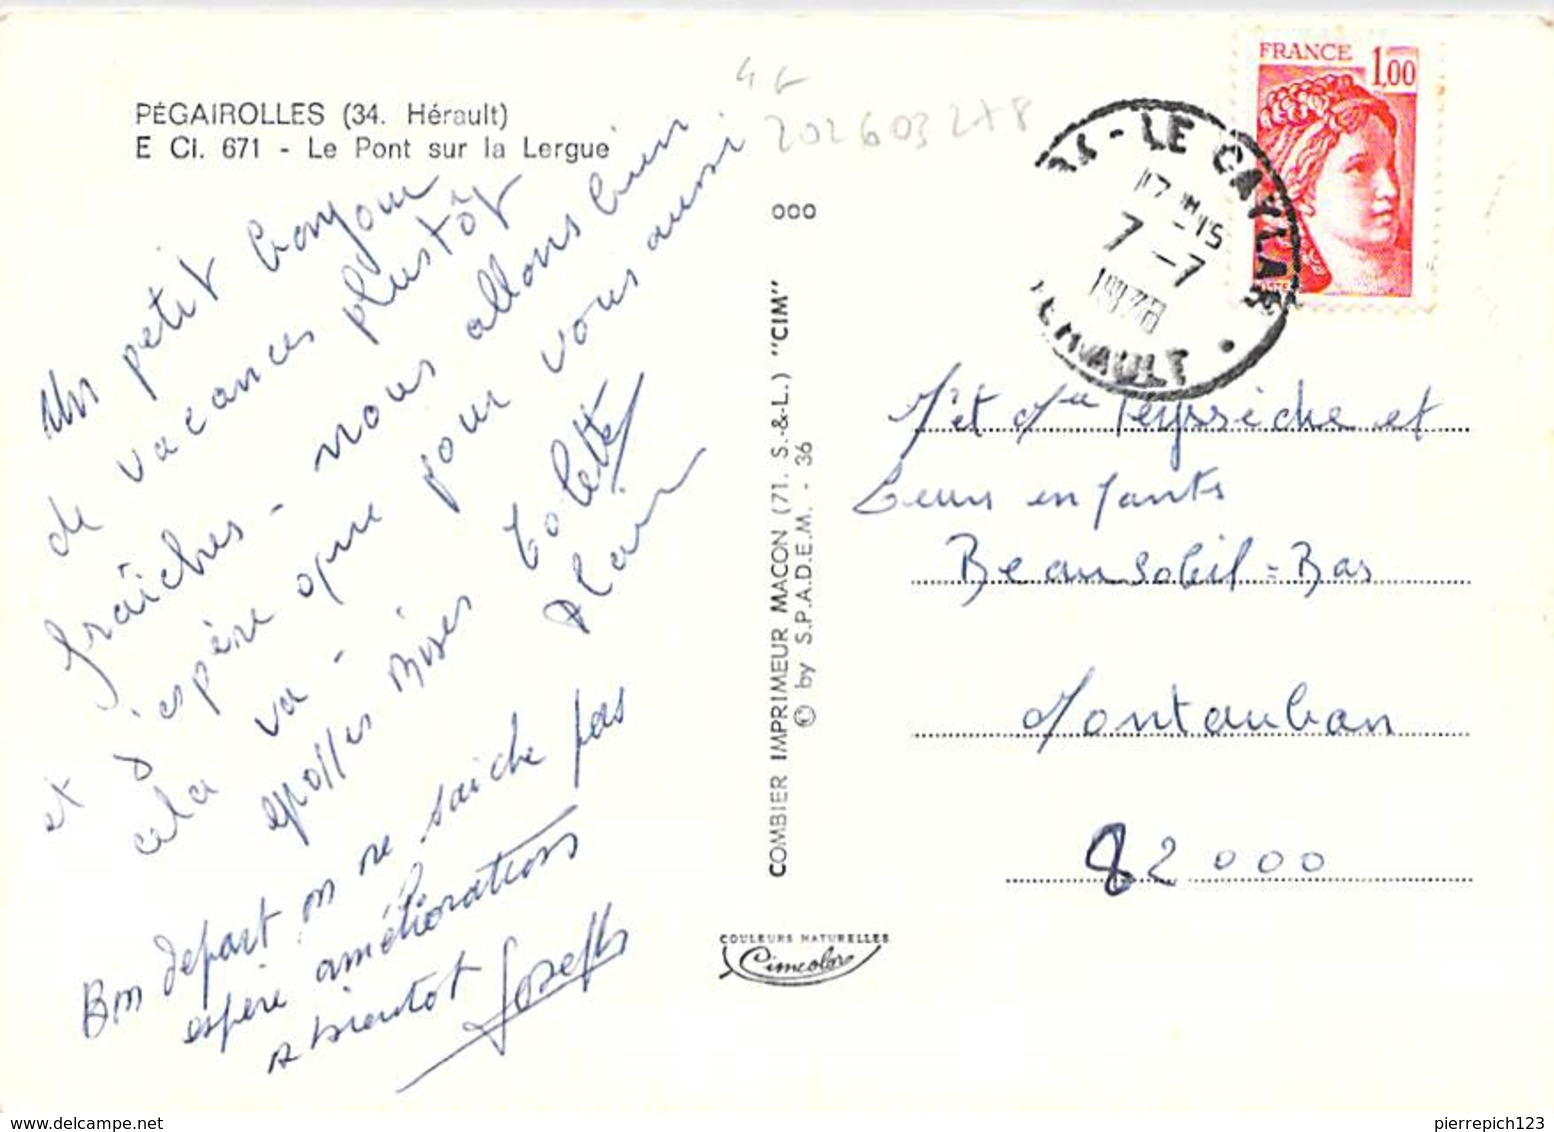 PÉGAIROLLES (34. Hérault)
E Ci. 671 - Le Pont sur la Lergue
Un petit bonjour
de vacances plustôt
fraîches - nous allons bien
et j'espère que pour vous aussi
cela va -
grosses Bises Colette
Alain
Bon depart on ne saiche pas
espère améliorations
A bientot Josette
4 G
202603278
000
COMBIER IMPRIMEUR MACON (71. S.-&-L.) "CIM"
© by S.P.A.D.E.M. - 36
COULEURS NATURELLES
Cimcolor
FRANCE 1,00
LE CAYLAR
17H-15
7-7
1978
HERAULT
M et Me Teyssèche et
Leurs enfants
Beausoleil-Bas
Montauban
82000
pierrepich123